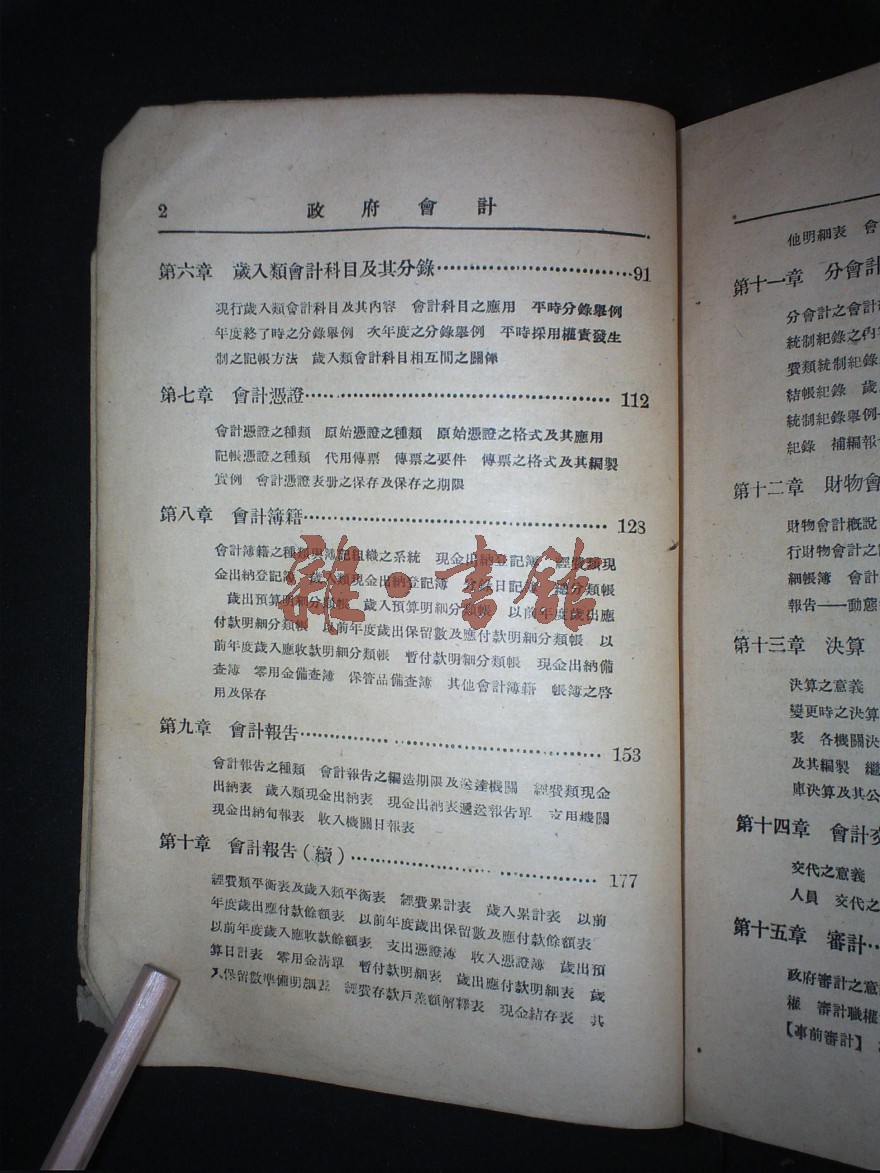 2 政府會計
第六章 歲入類會計科目及其分錄……………………91
現行歲入類會計科目及其內容 會計科目之應用 平時分錄舉例
年度終了時之分錄舉例 次年度之分錄舉例 平時採用權責發生
制之記帳方法 歲入類會計科目相互間之關係
第七章 會計憑證……………………………………112
會計憑證之種類 原始憑證之種類 原始憑證之格式及其應用
記帳憑證之種類 代用傳票 傳票之要件 傳票之格式及其編製
實例 會計憑證表册之保存及保存之期限
第八章 會計簿籍……………………………………128
會計簿籍之種類與簿記組織之系統 現金出納登記簿 經費類現
金出納登記簿 歲入類現金出納登記簿 分錄日記簿 總分類帳
歲出預算明細分類帳 歲入預算明細分類帳 以前年度歲出應
付款明細分類帳 以前年度歲出保留數及應付款明細分類帳 以
前年度歲入應收款明細分類帳 暫付款明細分類帳 現金出納備
查簿 零用金備查簿 保管品備查簿 其他會計簿籍 帳簿之啓
用及保存
第九章 會計報告……………………………………153
會計報告之種類 會計報告之編造期限及送達機關 經費類現金
出納表 歲入類現金出納表 現金出納表遞送報告單 支用機關
現金出納旬報表 收入機關日報表
第十章 會計報告(續)………………………………177
經費類平衡表及歲入類平衡表 經費累計表 歲入累計表 以前
年度歲出應付款餘額表 以前年度歲出保留數及應付款餘額表
以前年度歲入應收款餘額表 支出憑證簿 收入憑證簿 歲出預
算日計表 零用金清單 暫付款明細表 歲出應付款明細表 歲
入保留數準備明細表 經費存款戶差額解釋表 現金結存表 其
他明細表 會
第十一章 分會計
分會計之會計
統制紀錄之內
費類統制紀錄
結帳紀錄 歲
統制紀錄舉例
紀錄 補編報
第十二章 財物會
財物會計概說
行財物會計之
細帳簿 會計
報告——動態
第十三章 決算
決算之意義
變更時之決算
表 各機關決
及其編製 繼
庫決算及其公
第十四章 會計交
交代之意義
人員 交代之
第十五章 審計…
政府審計之意
權 審計職權
【事前審計】
雜·書館